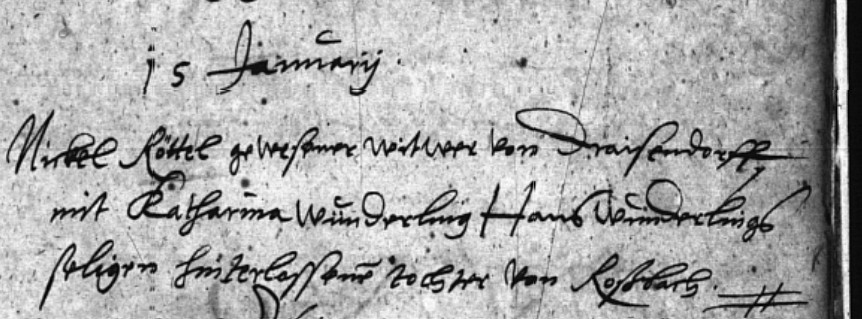 15 Januarij.
Nickel Köttel gewesener witwer von Draisendorff
mit Katharina Wunderling Hans Wunderlings
seligen hinterlassene tochter von Roßbach.